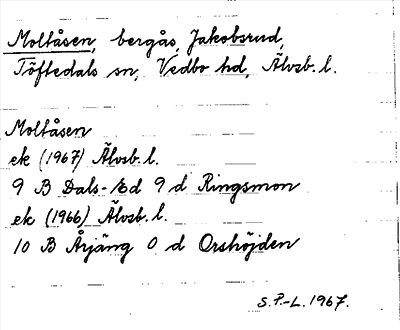 Moltåsen, bergås, Jakobsrud,
Töftedals sn, Vedbo hd, Älvsb. l.
Moltåsen
ek (1967) Älvsb. l.
9 B Dals-Ed 9 d Ringsmon
ek (1966) Älvsb. l.
10 B Årjäng 0 d Orshöjden
S. P.-L. 1967.